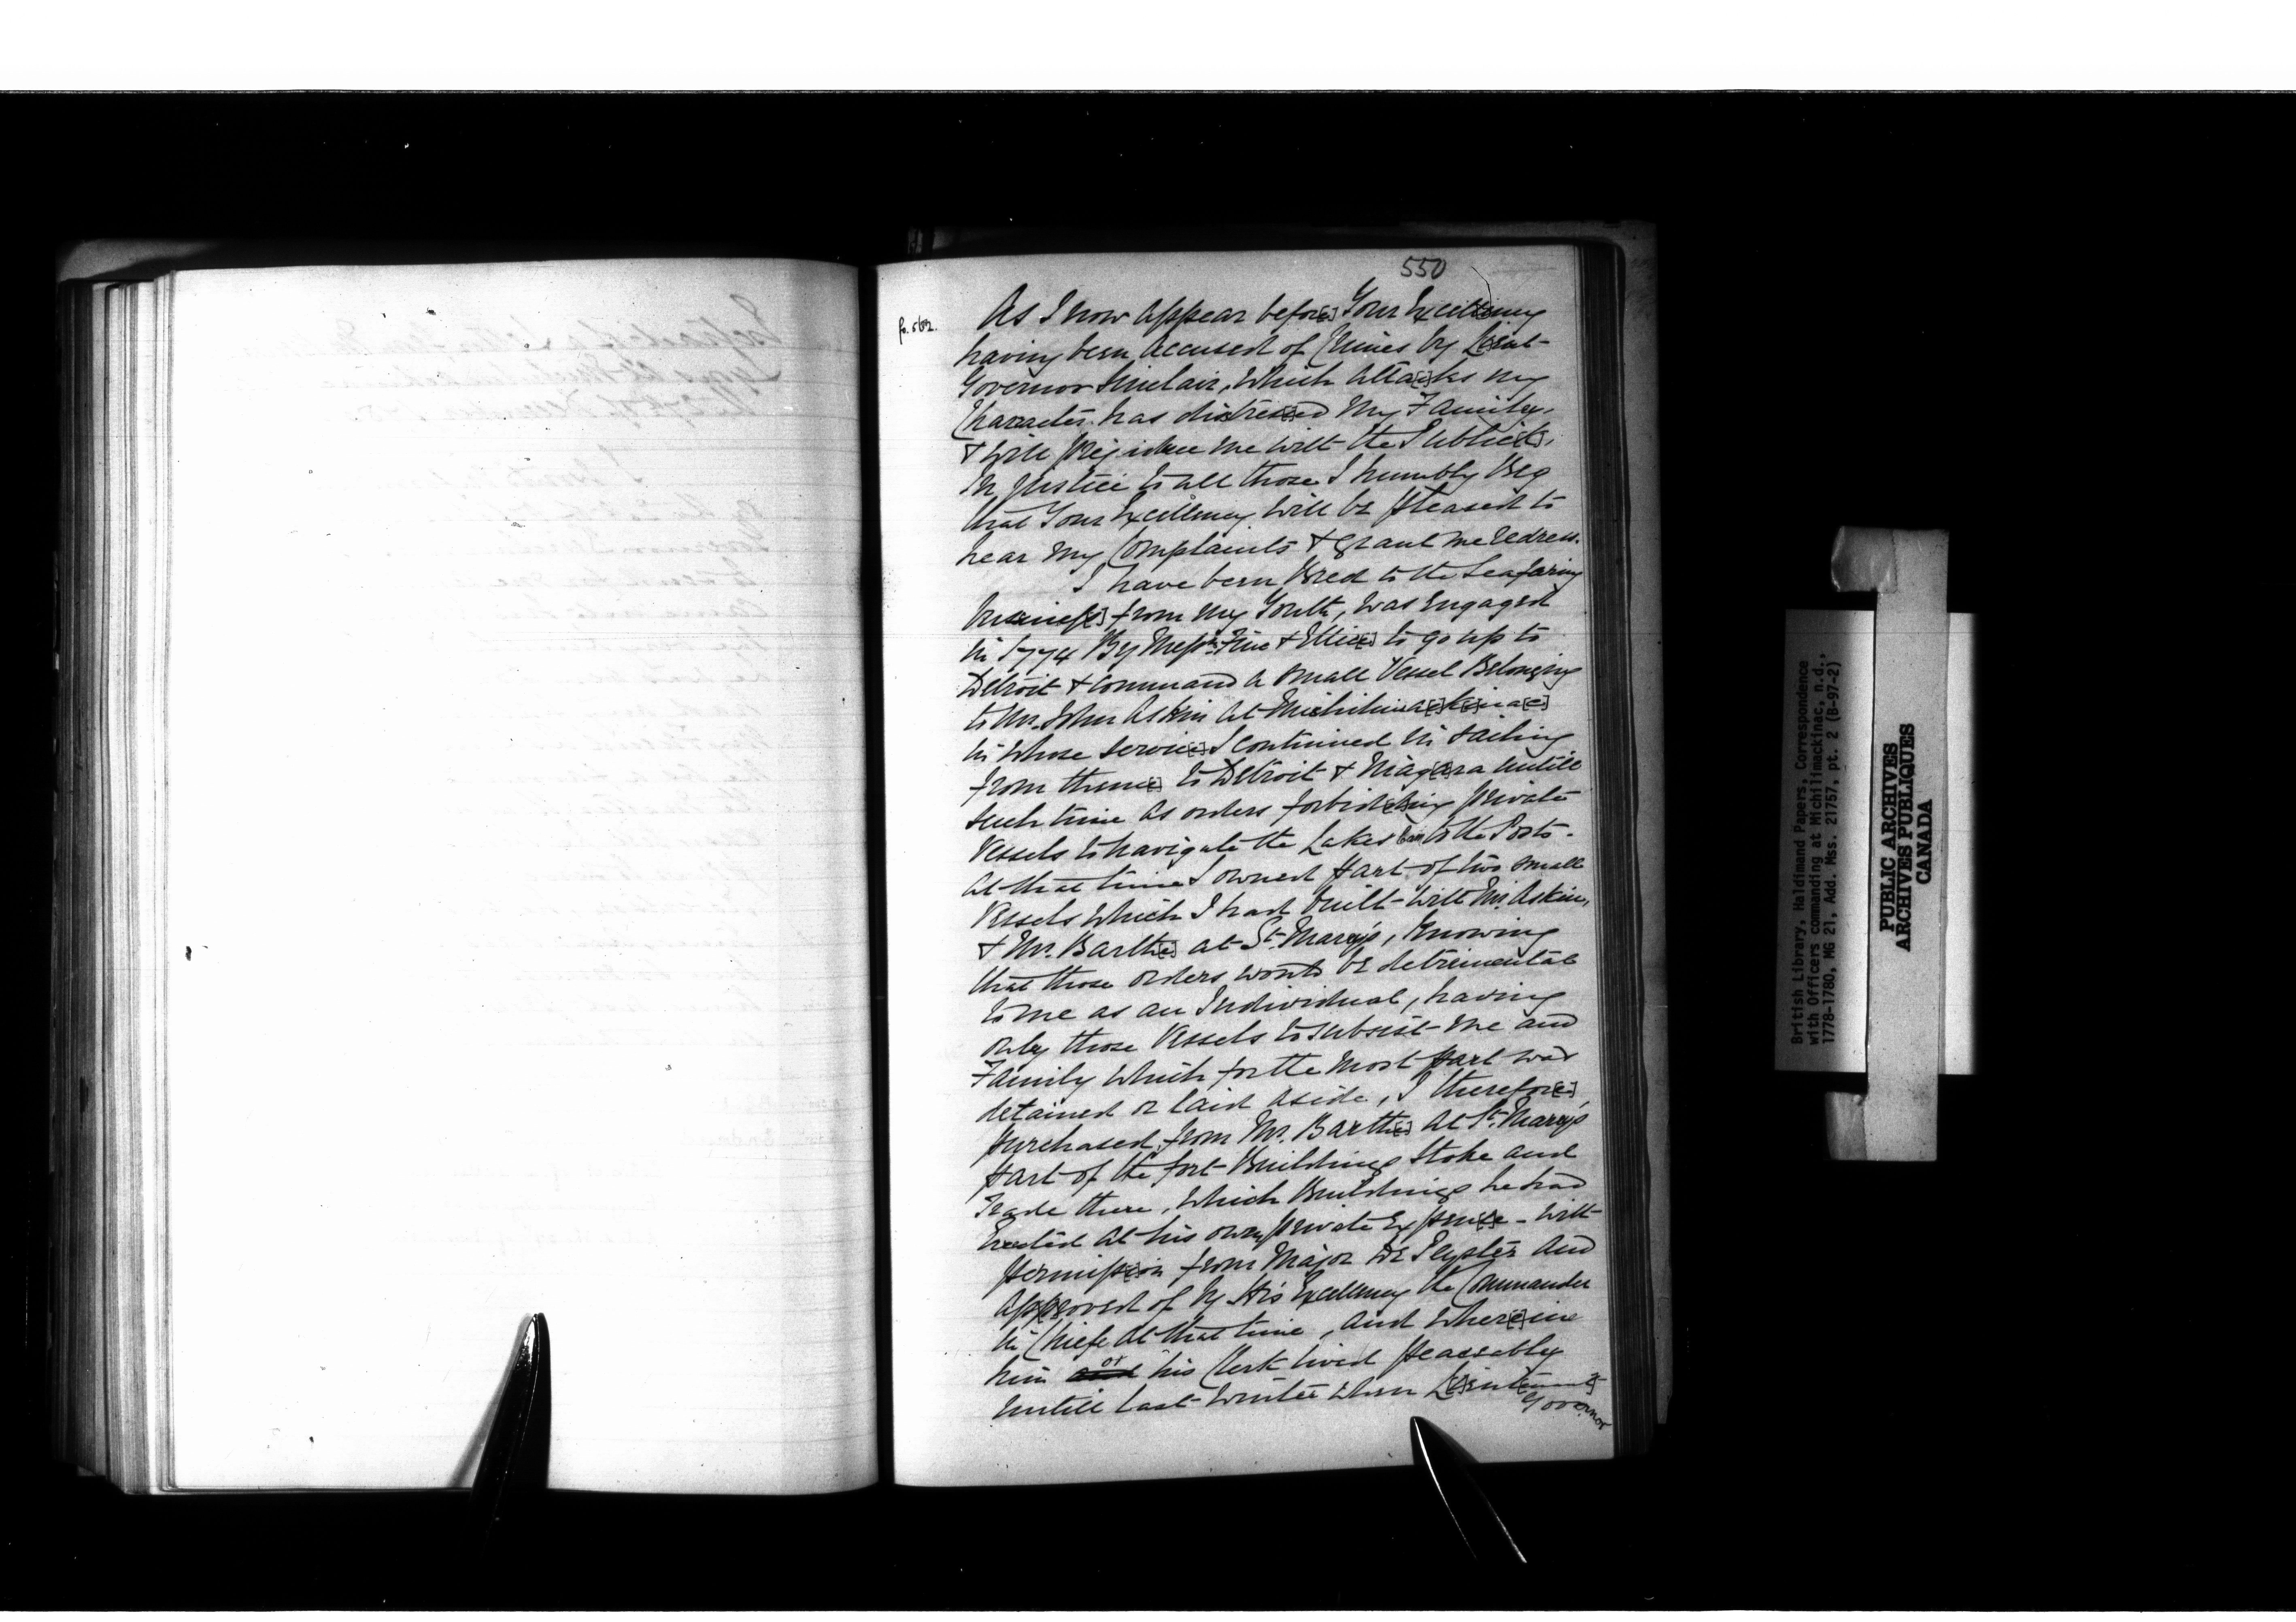 550
fo. 562.
As I now appear befor[e] Your Excellency
having been accused of Crimes by Lieut-
Governor Sinclair, Which atta[c]ks my
Character. has distressed My Family,
& will prejudice me with the Publick,
In justice to all those I humbly Beg
that Your Excellency will be pleased to
hear my Complaints & grant me redress.
I have been Bred to the Seafaring
business from my Youth, was Engaged
in 1774 By Messrs. & Ellic[e] to go up to
Detroit & command a small Vessel Belonging
to Mr. John Askin at Michilima[c]kina[c]
in whose servic[e] I continued in sailing
from thenc[e] to Detroit & Niagara untill
such time as orders forbidding private
Vessels to navigate the Lakes to the Posts-
at that time I owned part of two small
Vessels which I had built with Mr. Askin,
& Mr. Barth[e] at St. Marry's, Knowing
that those orders would be detrimental
to me as an Individual, having
only those Vessels to subsist me and
Family which for the most part was
detained or laid aside, I therefor[e]
purchased from Mr. Barth[e] at St. Marry's
part of the fort Buildings Stoke and
Trade there, which Buildings he had
Erected at his own private Expense - with
permission from Major De Peyster and
approved of by His Excellency the Commander
in Chiefe at that time, and wher[e]in
him and or his Clerk lived peaceably
untill last Winter when L[i]eut[enant]
Governor
British Library, Haldimand Papers, Correspondence
with Officers commanding at Michilimackinac, n.d.,
1778-1780, MG 21, Add. Mss. 21757, pt. 2 (B-97-2)
PUBLIC ARCHIVES
ARCHIVES PUBLIQUES
CANADA